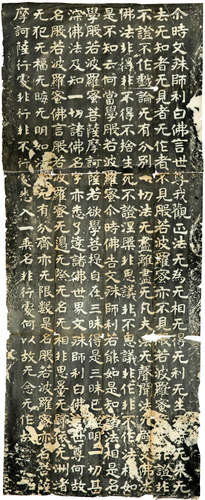 尒時文殊師利白佛言世尊我觀正法无為无相无得无利无生无滅无來无
去无知者无見者无作者不見般若波羅蜜亦不見般若波羅蜜境界非證非
不證不作戲論无有分別一切法无盡離盡无凡夫法无聲聞法无辟支佛法
佛法非得非不得不捨生死不證涅槃非思議非不思議非作非不作法相如
是不知云何當學般若波羅蜜尒時佛告文殊師利若能如是知諸法相是名當
學般若波羅蜜菩薩摩訶薩若欲學菩提自在三昧得是三昧已照明一切甚
深佛法及知一切諸佛名字亦悉了達諸佛世界文殊師利白佛言世尊何故
名般若波羅蜜佛言般若波羅蜜无邊无際无名无相非思量无歸依无洲渚
无犯无福无晦无明如法界无有分齊亦无限數是名般若波羅蜜亦名菩薩
摩訶薩行處非行非不行處悉入一乘名非行處何以故无念无作故